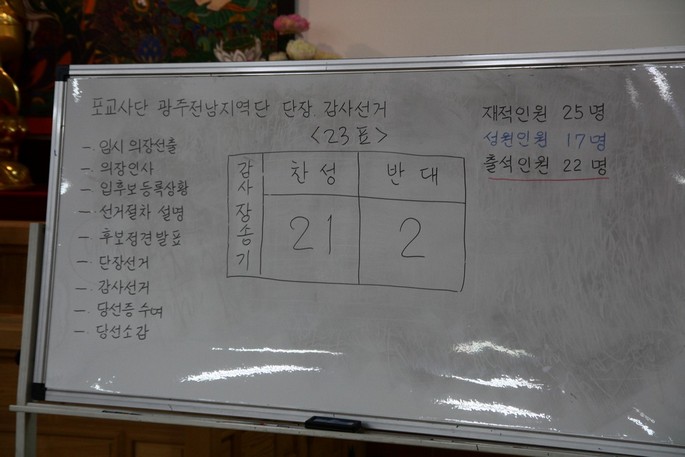 포교사단 광주전남지역단 단장. 감사선거
<23표>
- 임시 의장선출
- 의장인사
- 입후보등록상황
- 선거절차 설명
- 후보정견발표
- 단장선거
- 감사선거
- 당선증 수여
- 당선소감
감사 장송기
찬성 반대
21 2
재적인원 25명
성원인원 17명
출석인원 22명